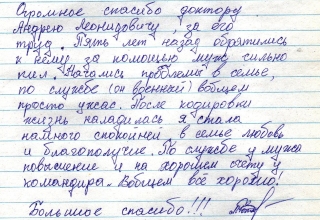 Огромное спасибо доктору
Андрею Леонидовичу, за его
труд. Пять лет назад обратились
к нему за помощью муж сильно
пил. Начались проблемы в семье,
по службе (он военный) вобщем
просто ужас. После кодировки
жизнь наладилась я стала
намного спокойней, в семье любовь
и благополучие. По службе у мужа
повышение и на хорошем счету у
командира. Вобщем всё хорошо!
Большое спасибо!!!